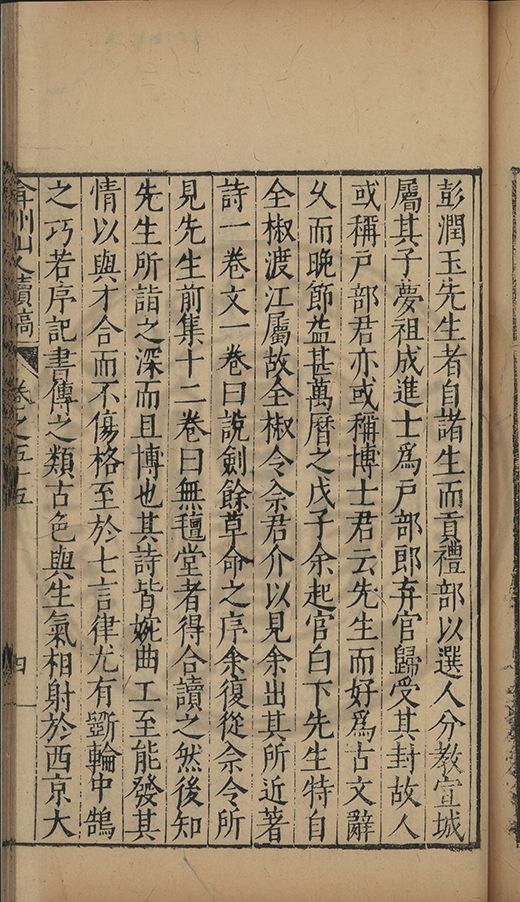 彭潤玉先生者自諸生而貢禮部以選人分教宣城
屬其子夢祖成進士爲戶部郎弃官歸受其封故人
或稱戶部君亦或稱博士君云先生而好爲古文辭
乆而晩節益甚萬曆之戊子余起官白下先生特自
全椒渡江屬故全椒令佘君介以見余出其所近著
詩一卷文一卷曰說劍餘草命之序余復從佘令所
見先生前集十二卷曰無氊堂者得合讀之然後知
先生所詣之深而且博也其詩皆婉曲工至能發其
情以與才合而不傷格至於七言律尤有斵輪中鵠
之巧若序記書傳之類古色與生氣相射於西京大
弇州山人續稿 卷之五十五 四